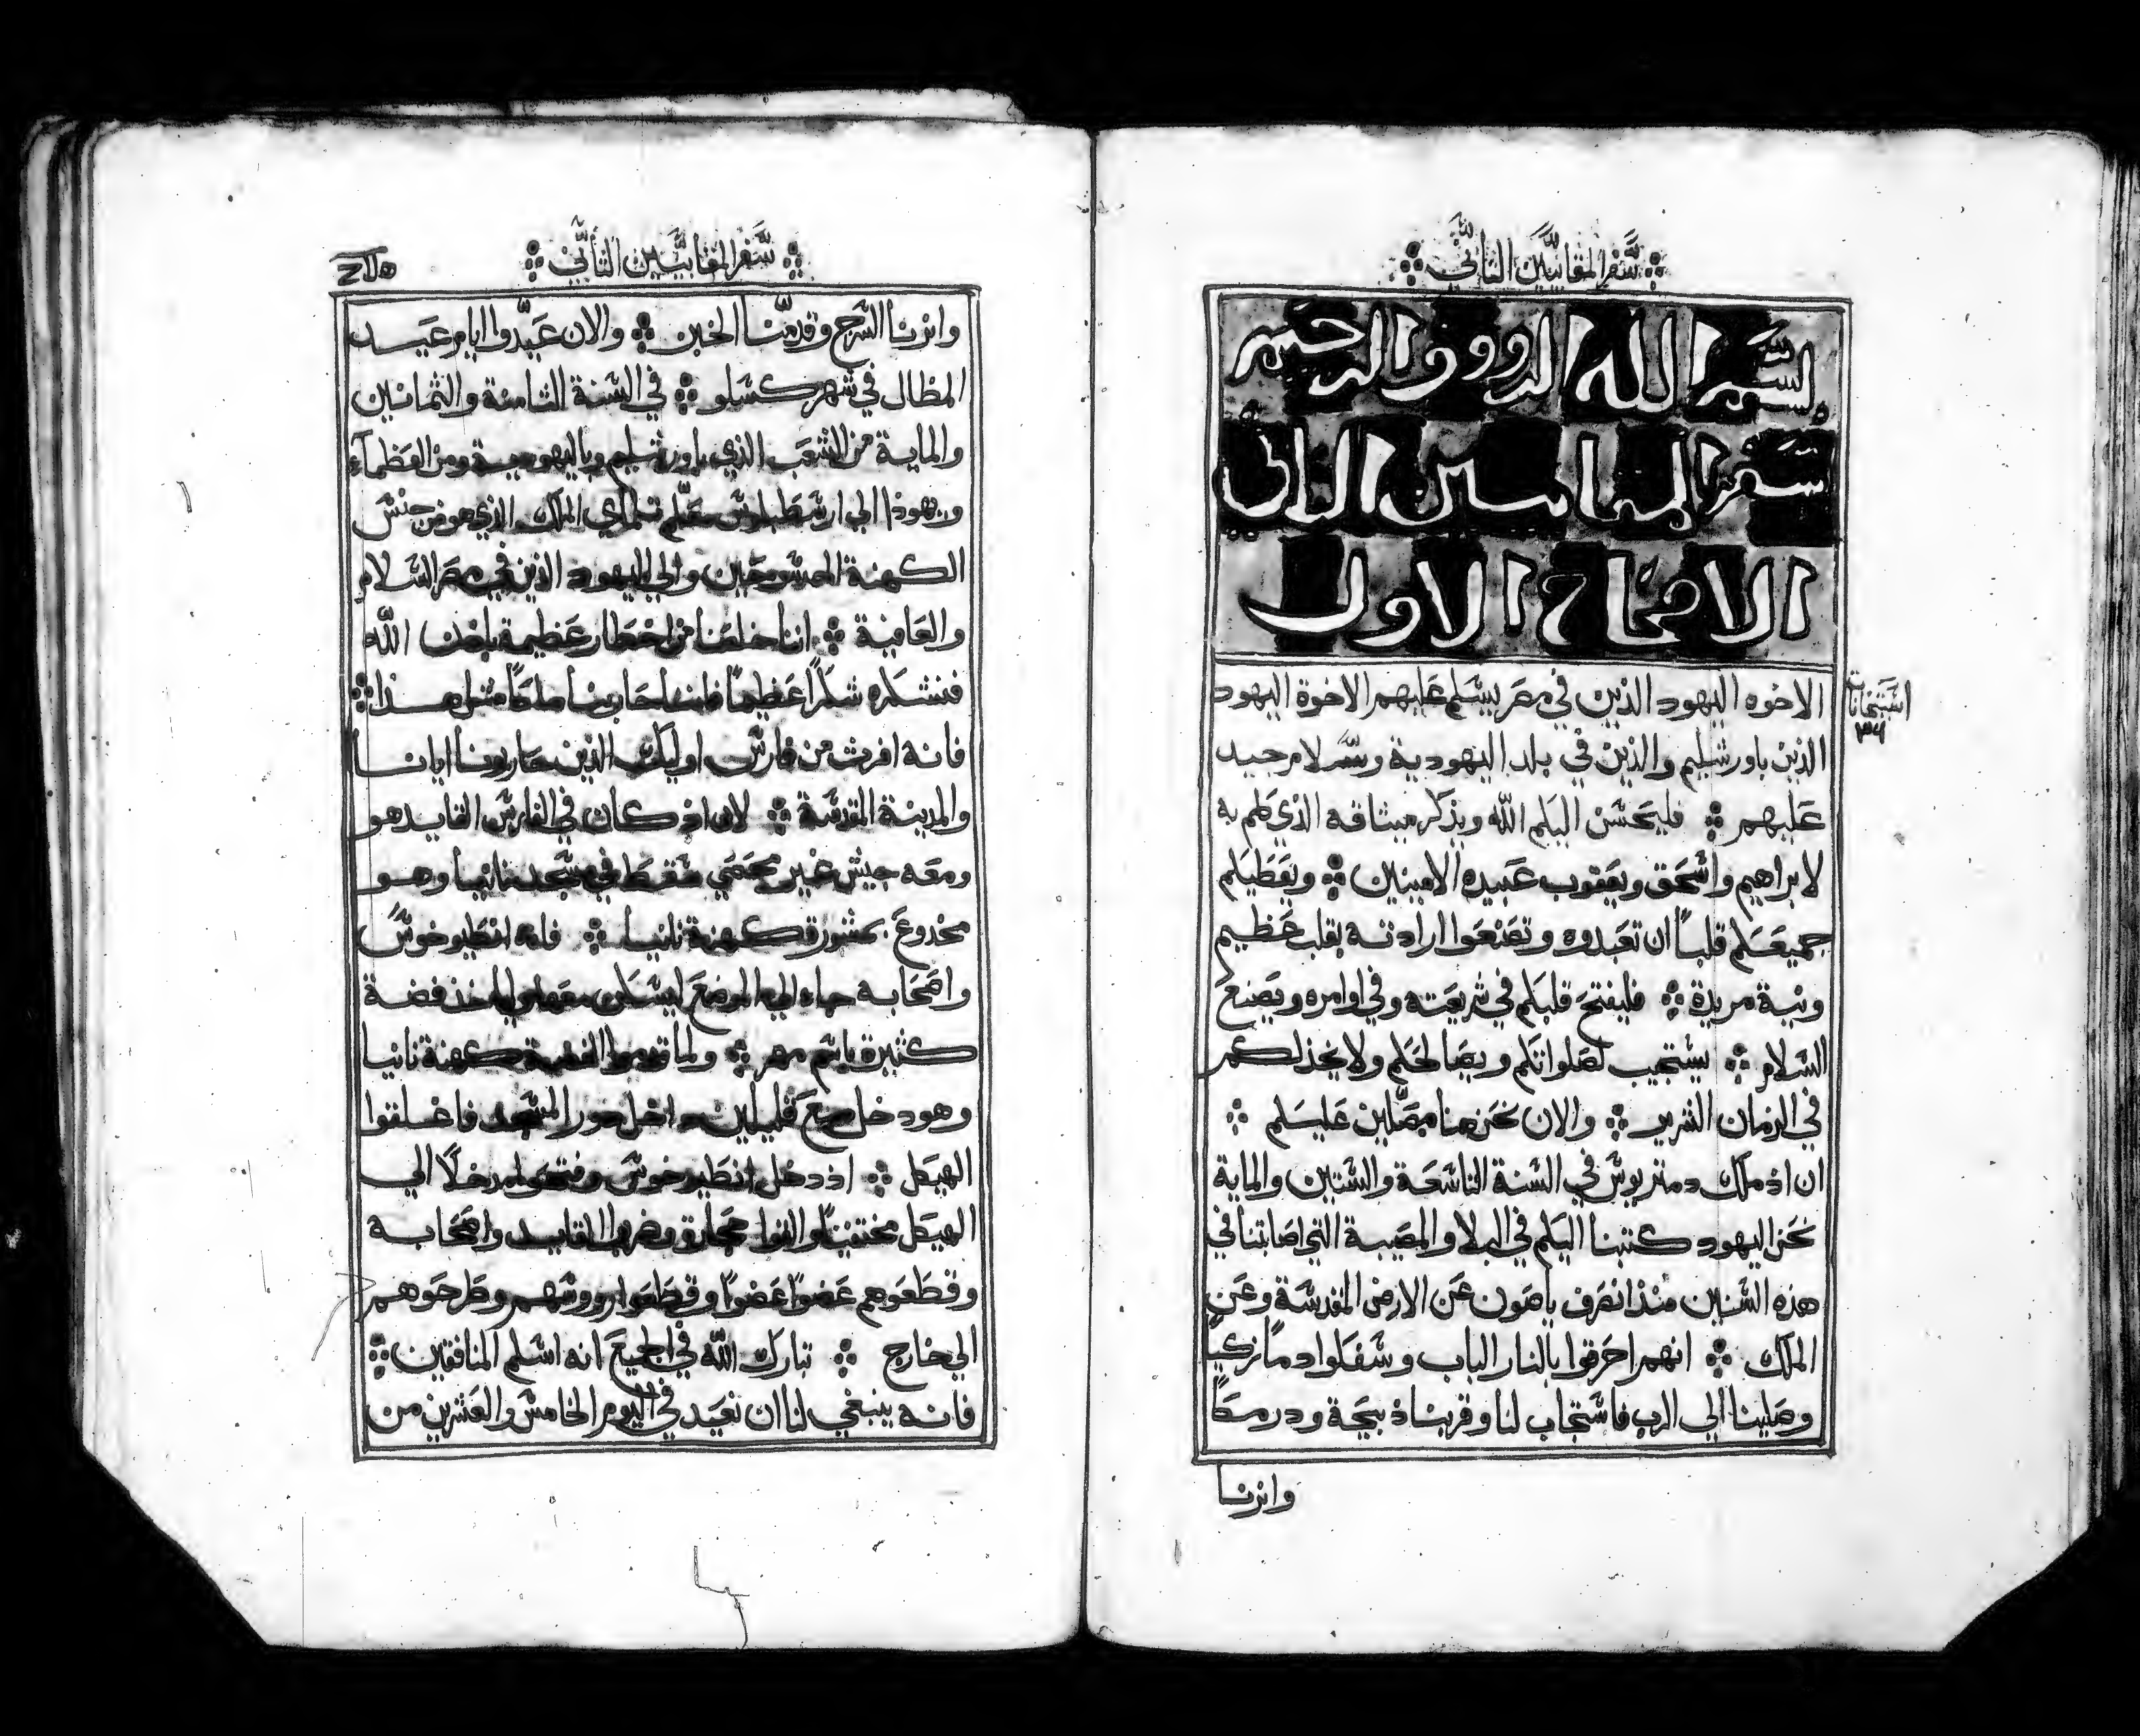 سفر المقابيين الثاني
بسم الله الرووف الرحيم
سفر المقابيين الثاني
الاصحاح الاول
الاخوه اليهود الذين في مصر يسلم عليهم الاخوة اليهود
الذين باورشليم والذين في بلد اليهودية وسلام جيد
عليهم ⁘ فليحسن اليكم الله ويذكر ميثاقه الذي كلم به
لابراهيم واسحق ويعقوب عبيده الامينين ⁘ ويعطيكم
جميعكم قلباً ان تعبدوه وتصنعوا ارادته بقلب عظيم
ونية مريدة ⁘ فليفتح قلبكم في شريعته وفي اوامره ويصنع
السلام ⁘ يستجيب لصلواتكم ويصالحكم ولا يخذلكم
في الزمان الشرير ⁘ والان نحن هنا مصلين عليكم ⁘
ان اذ ملك دمتريوس في السنة التاسعة والستين والماية
نحن اليهود كتبنا اليكم في البلا والمصيبة التي اصابتنا في
هذه السنين منذ انصرف ياصون عن الارض المقدسة وعن
الملك ⁘ انهم احرقوا بالنار الباب وسفكوا دماً زكياً
وصلينا الي الرب فاستجاب لنا وقربنا ذبيحة ودرمكاً
وانرنا
استنخات
٣٦
سفر المقابيين الثاني
وانرنا السرج وقدمنا الخبز ⁘ والان عيدوا ايام عيد
المظال في شهر كسلو ⁘ في السنة الثامنة والثمانين
والماية من الشعب الذي باورشليم وباليهودية ومن العظماء
ويهوذا الي ارسطبلوس معلم تلماي الملك الذي هو من جنس
الكهنة الممسوحين والي اليهود الذين في مصر السلام
والعافية ⁘ اننا خلصنا من اخطار عظيمة باذن الله
فنشكره شكراً عظيماً فاننا حاربنا ملكاً مثل هذا ⁘
فانه افرث من فارس اوليك الذين حاربونا ايانا
والمدينة المقدسة ⁘ لان اذ كان في الفارس القايد هو
ومعه جيش غير محصي سقط في مسجد نانيا وهو
مخدوع بمشورة كهنة نانيا ⁘ فانه انطيوخوس
واصحابه جاء الي الموضع ليسكن معها ولياخذ فضة
كثيرة باسم مهر ⁘ ولما قدموا الفضة كهنة نانيا
وهو دخل مع قليلين داخل دور المسجد فاغلقوا
الهيكل ⁘ اذ دخل انطيوخوس وفتحوا مدخلاً الي
الهيكل مختفياً والقوا حجارة وضربوا القايد واصحابه
وقطعوهم عضواً عضواً وقطعوا رووسهم وطرحوهم
الي خارج ⁘ تبارك الله في الجميع انه اسلم المنافقين ⁘
فانه ينبغي لنا ان نعيد في اليوم الخامس والعشرين من